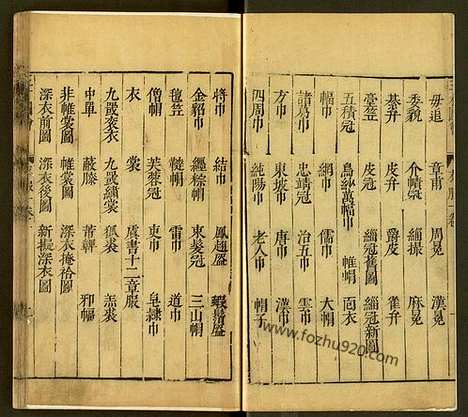 毋追 章甫 周冕 漢冕
委貌 介幘 緇撮 麻冕
綦弁 皮弁 爵皮 雀弁
臺笠 緇冠舊圖 緇冠新圖
五積冠 烏紗萬幅巾 帷帽 面衣
幅巾 網巾 儒巾 大帽
諸葛巾 忠靖冠 治五巾 雲巾
方巾 東坡巾 唐巾 漢巾
四周巾 純陽巾 老人巾 帽子
將巾 結巾 鳳翅盔 蝦鬚盔
金貂巾 纒棕帽 束髮冠 三山帽
氊笠 韃帽 雷巾 道巾
僧帽 芙蓉冠 東巾 皂隸巾
衣 裳 虞書十二章服
九罭衮衣 九罭繡裳 狐裘 羔裘
中單 蔽膝 芾韠 邪幅
非帷裳圖 帷裳圖 深衣掩袷圖
深衣前圖 深衣後圖 新擬深衣圖
www.fozhu920.com